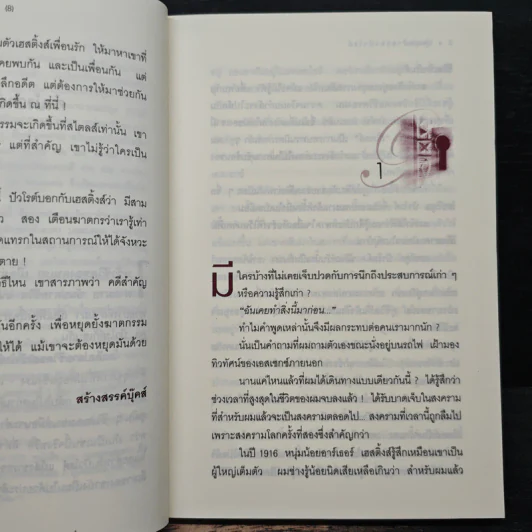 (8)
นตัวเฮสติ้งส์เพื่อนรัก ให้มาหาเขาที่
คยพบกัน และเป็นเพื่อนกัน แต่
ลึกอดีต แต่ต้องการให้มาช่วยกัน
กิดขึ้น ณ ที่นี่ !
รรมจะเกิดขึ้นที่สไตลส์เท่านั้น เขา
แต่ที่สำคัญ เขาไม่รู้ว่าใครเป็น
ปัวโรต์บอกกับเฮสติ้งส์ว่า มีสาม
สอง เตือนฆาตกรว่าเรารู้เท่า
ดแทรกในสถานการณ์ให้ได้จังหวะ
ตาย !
ธีไหน เขาสารภาพว่า คดีสำคัญ
นอีกครั้ง เพื่อหยุดยั้งฆาตกรรม
ให้ได้ แม้เขาจะต้องหยุดมันด้วย
สร้างสรรค์บุ๊คส์
1
มีใครบ้างที่ไม่เคยเจ็บปวดกับการนึกถึงประสบการณ์เก่า ๆ
หรือความรู้สึกเก่า ?
“ฉันเคยทำสิ่งนี้มาก่อน...”
ทำไมคำพูดเหล่านั้นจึงมีผลกระทบต่อคนเรามากนัก ?
นั่นเป็นคำถามที่ผมถามตัวเองขณะนั่งอยู่บนรถไฟ เฝ้ามอง
ทิวทัศน์ของเอสเซกซ์ภายนอก
นานแค่ไหนแล้วที่ผมได้เดินทางแบบเดียวกันนี้ ? ได้รู้สึกว่า
ช่วงเวลาที่สูงสุดในชีวิตของผมจบลงแล้ว ! ได้รับบาดเจ็บในสงคราม
ที่สำหรับผมแล้วจะเป็นสงครามตลอดไป... สงครามที่เวลานี้ถูกลืมไป
เพราะสงครามโลกครั้งที่สองซึ่งสำคัญกว่า
ในปี 1916 หนุ่มน้อยอาร์เธอร์ เฮสติ้งส์รู้สึกเหมือนเขาเป็น
ผู้ใหญ่เต็มตัว ผมช่างรู้น้อยนิดเสียเหลือเกินว่า สำหรับผมแล้ว